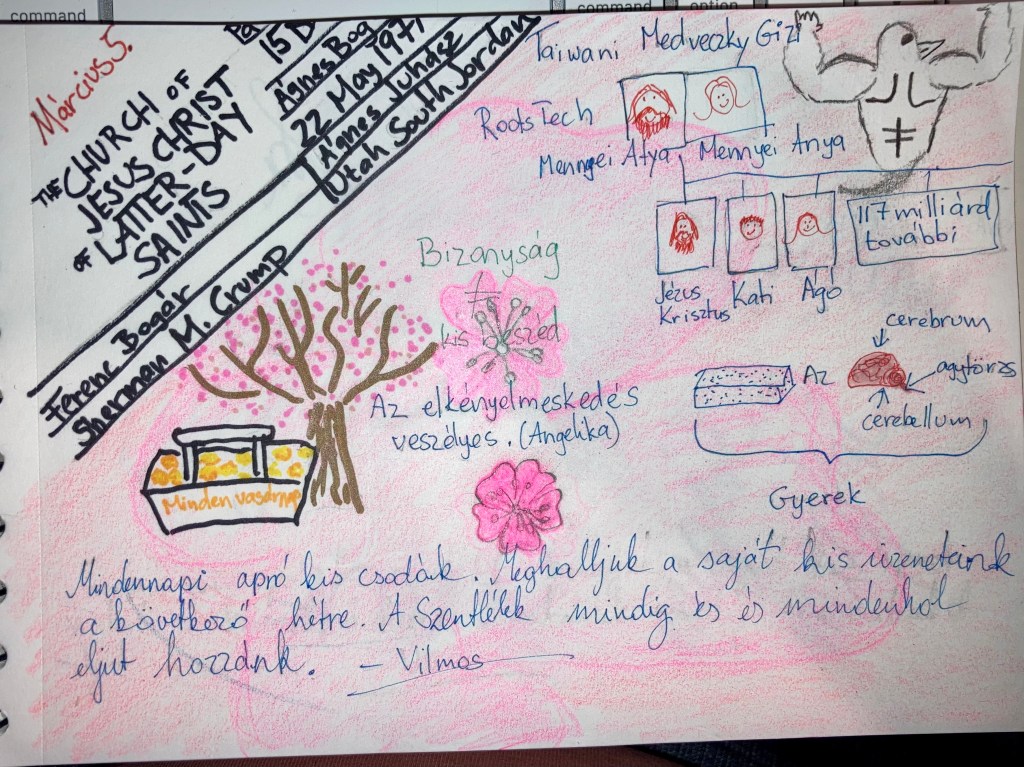 command
command
option
Március 5.
THE CHURCH OF
JESUS CHRIST
OF LATTER-DAY
SAINTS
15 D
Ágnes Bog
22 May 1971
Ágnes Juhász
Utah South Jordan
Ferenc Bogár
Shermen M. Crump
Taiwani Medveczky Gizi
RootsTech
Mennyei Atya Mennyei Anya
Jézus
Krisztus
Kati
Ágó
117 milliárd
további
Bizonyság
≠
kis beszéd
Az elkényelmeskedés
veszélyes. (Angelika)
Az
cerebrum
agytörzs
cerebellum
Gyerek
Minden vasárnap
Mindennapi apró kis csodák. Meghalljuk a saját kis üzeneteink
a következő hétre. A Szentlélek mindig és és mindenhol
eljut hozzánk. – Vilmos